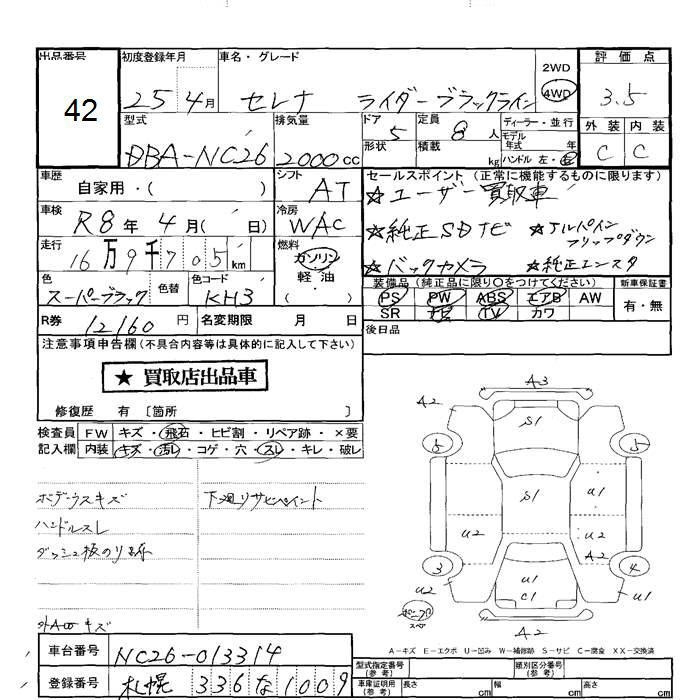 出品番号 42
初度登録年月 25 4月
車名・グレード セレナ ライダーブラックライン
2WD 4WD
評価点 3.5
外装 内装
C C
型式 DBA-NC26
排気量 2000cc
ドア 5
形状
定員 8人
積載 kg
ディーラー・並行
モデル年式 年式
ハンドル 左・右
車歴 自家用・( )
シフト AT
セールスポイント (正常に機能するものに限ります)
☆ユーザー買取車
☆純正SDナビ ☆アルパインフリップダウン
☆バックカメラ ☆純正エンスタ
車検 R8年 4月( 日)
冷房 WAC
走行 16万9千705km
燃料 ガソリン 軽油・( )
色 スーパーブラック
色替
色コード KH3
装備品 (純正品に限り○をつけてください)
PS PW ABS エアB AW
SR ナビ TV カワ
新車保証書 有・無
R券 12160円
名変期限 月 日
後日品
注意事項申告欄(不具合内容等は具体的に記入して下さい)
★ 買取店出品車
修復歴 有 〔箇所 〕
検査員記入欄
FW キズ・飛石・ヒビ割・リペア跡・×要
内装 キズ・汚れ・コゲ・穴・スレ・キレ・破レ
ボデーウスキズ
下廻りサビペイント
ハンドルスレ
ダッシュ板のり跡
外AWキズ
A3
A2
S1
5 5
S1
U1
U2 U2
A2
3 4
U2 U2
U1
C1
U1
スペア
A2
A-キズ E-エクボ U-凹み W-補修跡 S-サビ C-腐食 XX-交換済
車台番号 NC26-013314
登録番号 札幌 336 な 1009
型式指定番号(参考)
類別区分番号(参考)
車庫証明用(参考) 長さ cm 幅 cm 高さ cm